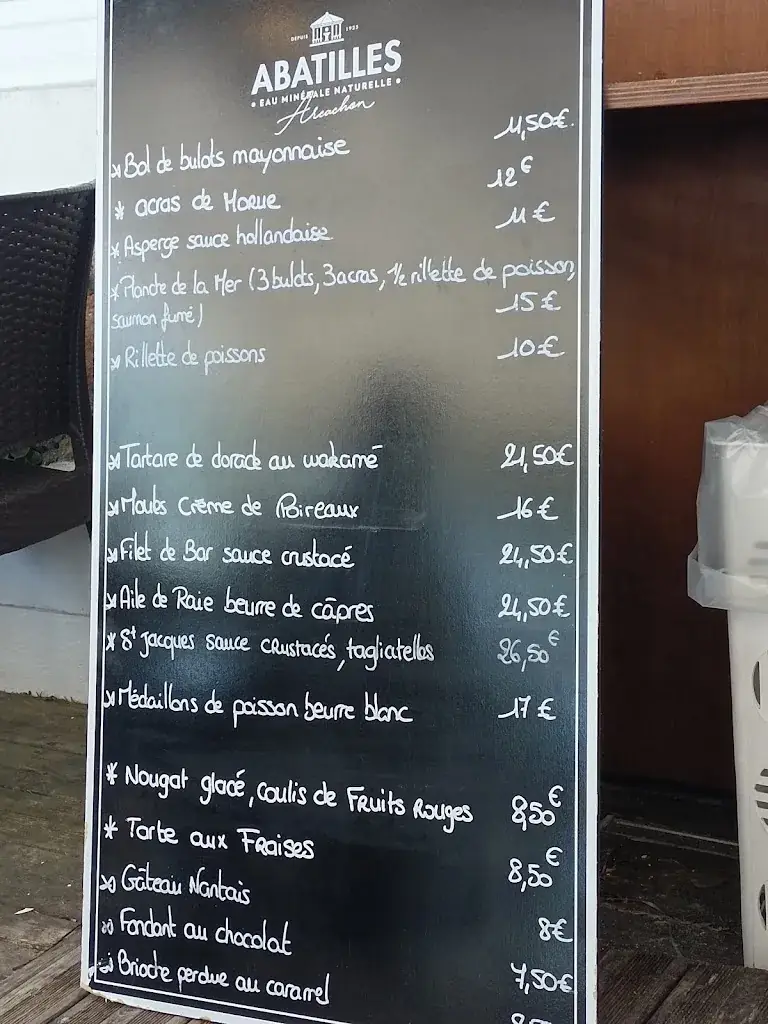 DEPUIS 1923
ABATILLES
• EAU MINÉRALE NATURELLE •
Arcachon
* Bol de bulots mayonnaise 11,50€
* acras de Morue 12€
* Asperge sauce hollandaise 11€
* Planche de la Mer (3 bulots, 3 acras, 1/2 rillette de poisson,
saumon fumé) 15€
* Rillette de poissons 10€
* Tartare de dorade au wakamé 21,50€
* Moules Crème de Poireaux 16€
* Filet de Bar sauce crustacé 24,50€
* Aile de Raie beurre de câpres 24,50€
* St jacques sauce crustacés, tagliatelles 26,50€
* Médaillons de poisson beurre blanc 17€
* Nougat glacé, coulis de Fruits Rouges 8,50€
* Tarte aux Fraises 8,50€
* Gâteau Nantais 8€
* Fondant au chocolat 7,50€
* Brioche perdue au caramel